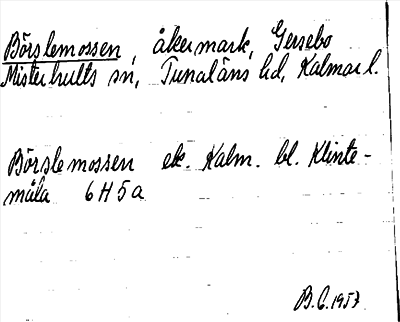 Börslemossen, åkermark, Gersebo
Misterhults sn, Tunaläns hd, Kalmar l.
Börslemossen ek. Kalm. bl. Klinte-
måla 6H5a
B.C. 1957